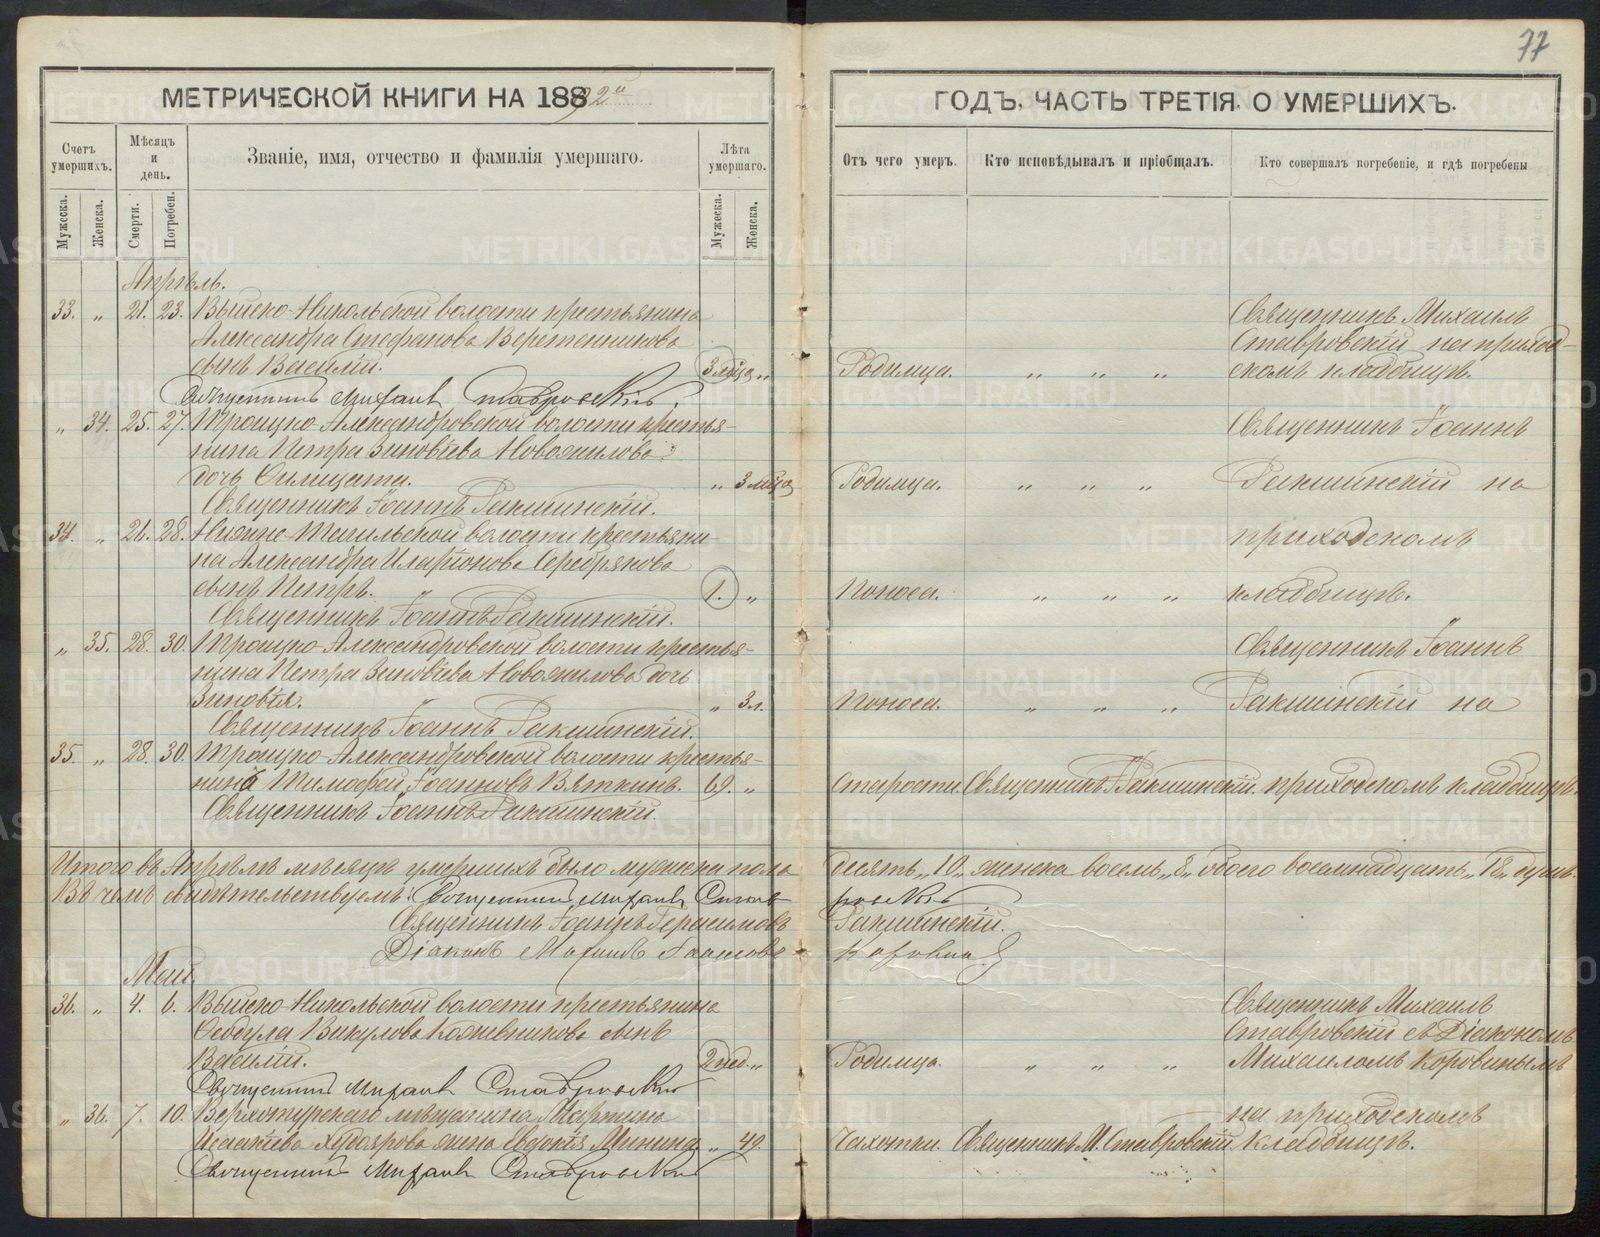 77
МЕТРИЧЕСКОЙ КНИГИ НА 1892й
ГОДЪ, ЧАСТЬ ТРЕТІЯ. О УМЕРШИХЪ.
Счетъ умершихъ.
Мѣсяцъ и день.
Званіе, имя, отчество и фамилія умершаго.
Лѣта умершаго.
Отъ чего умеръ.
Кто исповѣдывалъ и пріобщалъ.
Кто совершалъ погребеніе, и гдѣ погребены
Мужеска.
Женска.
Смерти.
Погребен.
Мужеска.
Женска.
Апрѣль.
33. „ 21. 23. Выйско-Никольской волости крестьянина
Александра Стефанова Веретенникова
сынъ Василій. 3 мѣсца „ Родимца. „ „ „
Священникъ Михаилъ
Ставровскій на приход-
скомъ кладбищѣ.
Священникъ Михаилъ Ставровскій.
„ 34. 25. 27. Троицко-Александровской волости крестья-
нина Петра Зиновіева Новожилова
дочь Силицата. „ 3 мѣсца Родимца. „ „ „
Священникъ Іоаннъ
Ракшинскій на
Священникъ Іоаннъ Ракшинскій.
34. „ 26. 28. Нижне-Тагильской волости крестьяни-
на Александра Иларіонова Серебрякова
сынъ Петръ. 1. „ Поноса. „ „ „
приходскомъ
кладбищѣ.
Священникъ Іоаннъ Ракшинскій.
„ 35. 28. 30. Троицко-Александровской волости крестья-
нина Петра Зиновіева Новожилова дочь
Зиновія. „ 3 л. Поноса. „ „ „
Священникъ Іоаннъ
Ракшинскій на
Священникъ Іоаннъ Ракшинскій.
35. „ 28. 30. Троицко-Александровской волости крестья-
нинъ Тимофей Іоанновъ Вяткинъ. 69. „ Старости. Священникъ І. Ракшинскій. приходскомъ кладбищѣ.
Священникъ Іоаннъ Ракшинскій.
Итого въ Апрѣлѣ мѣсяцѣ умершихъ было мужеска пола десять „10„ женска восемь „8„ обоего восемнадцать „18„ душъ.
Въ чемъ свидѣтельствуемъ: Священникъ Михаилъ Ставровскій
Священникъ Іоаннъ Герасимовъ Ракшинскій.
Діаконъ Михаилъ Коровинъ
Май.
36. „ 4. 6. Выйско-Никольской волости крестьянина
Ѳедула Викулова Кожевникова сынъ
Василій. 2 нед. „ Родимца. „ „ „
Священникъ Михаилъ
Ставровскій съ Діакономъ
Михаиломъ Коровинымъ
Священникъ Михаилъ Ставровскій
„ 36. 7. 10. Верхотурскаго мѣщанина Мартина
Исакіева Худоярова жена Евдокія Минина „ 49. Чахотки. Священникъ М. Ставровскій.
на приходскомъ
кладбищѣ.
Священникъ Михаилъ Ставровскій
METRIKI.GASO-URAL.RU